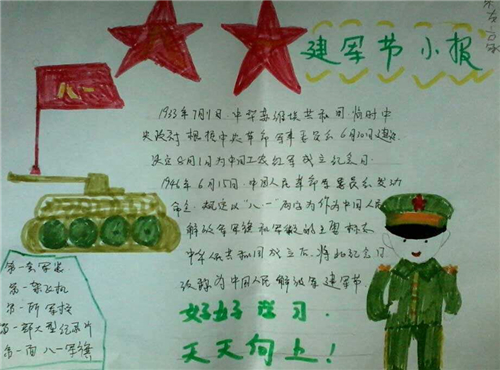 建军节小报
八一
1933年7月1日,中华苏维埃共和国临时中
央政府根据中央革命军事委员会6月30日建议
决定8月1日为中国工农红军成立纪念日
1946年6月15日,中国人民革命军委员会发
命令,规定以"八一"两字为作为中国人民
解放军军旗和军徽的主要标志
中华人民共和国成立后,将此纪念日
改称为中国人民解放军建军节
好好学习
天天向上!
第一套军装
第一架飞机
第一所军校
第一部大型纪录片
第一面八一军旗